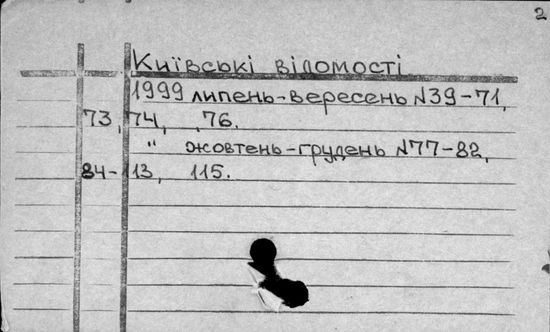 2
Київські відомості
1999 липень-вересень №39-71,
73, 74, ,76.
" жовтень-грудень №77-82,
84-113, 115.